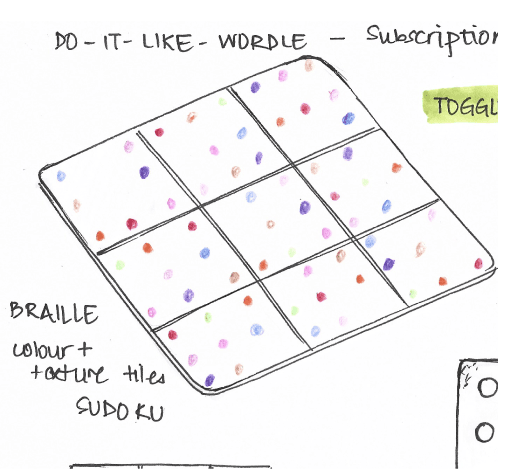 DO-IT-LIKE-WORDLE - Subscription
TOGGL
BRAILLE
colour +
texture tiles
SUDOKU